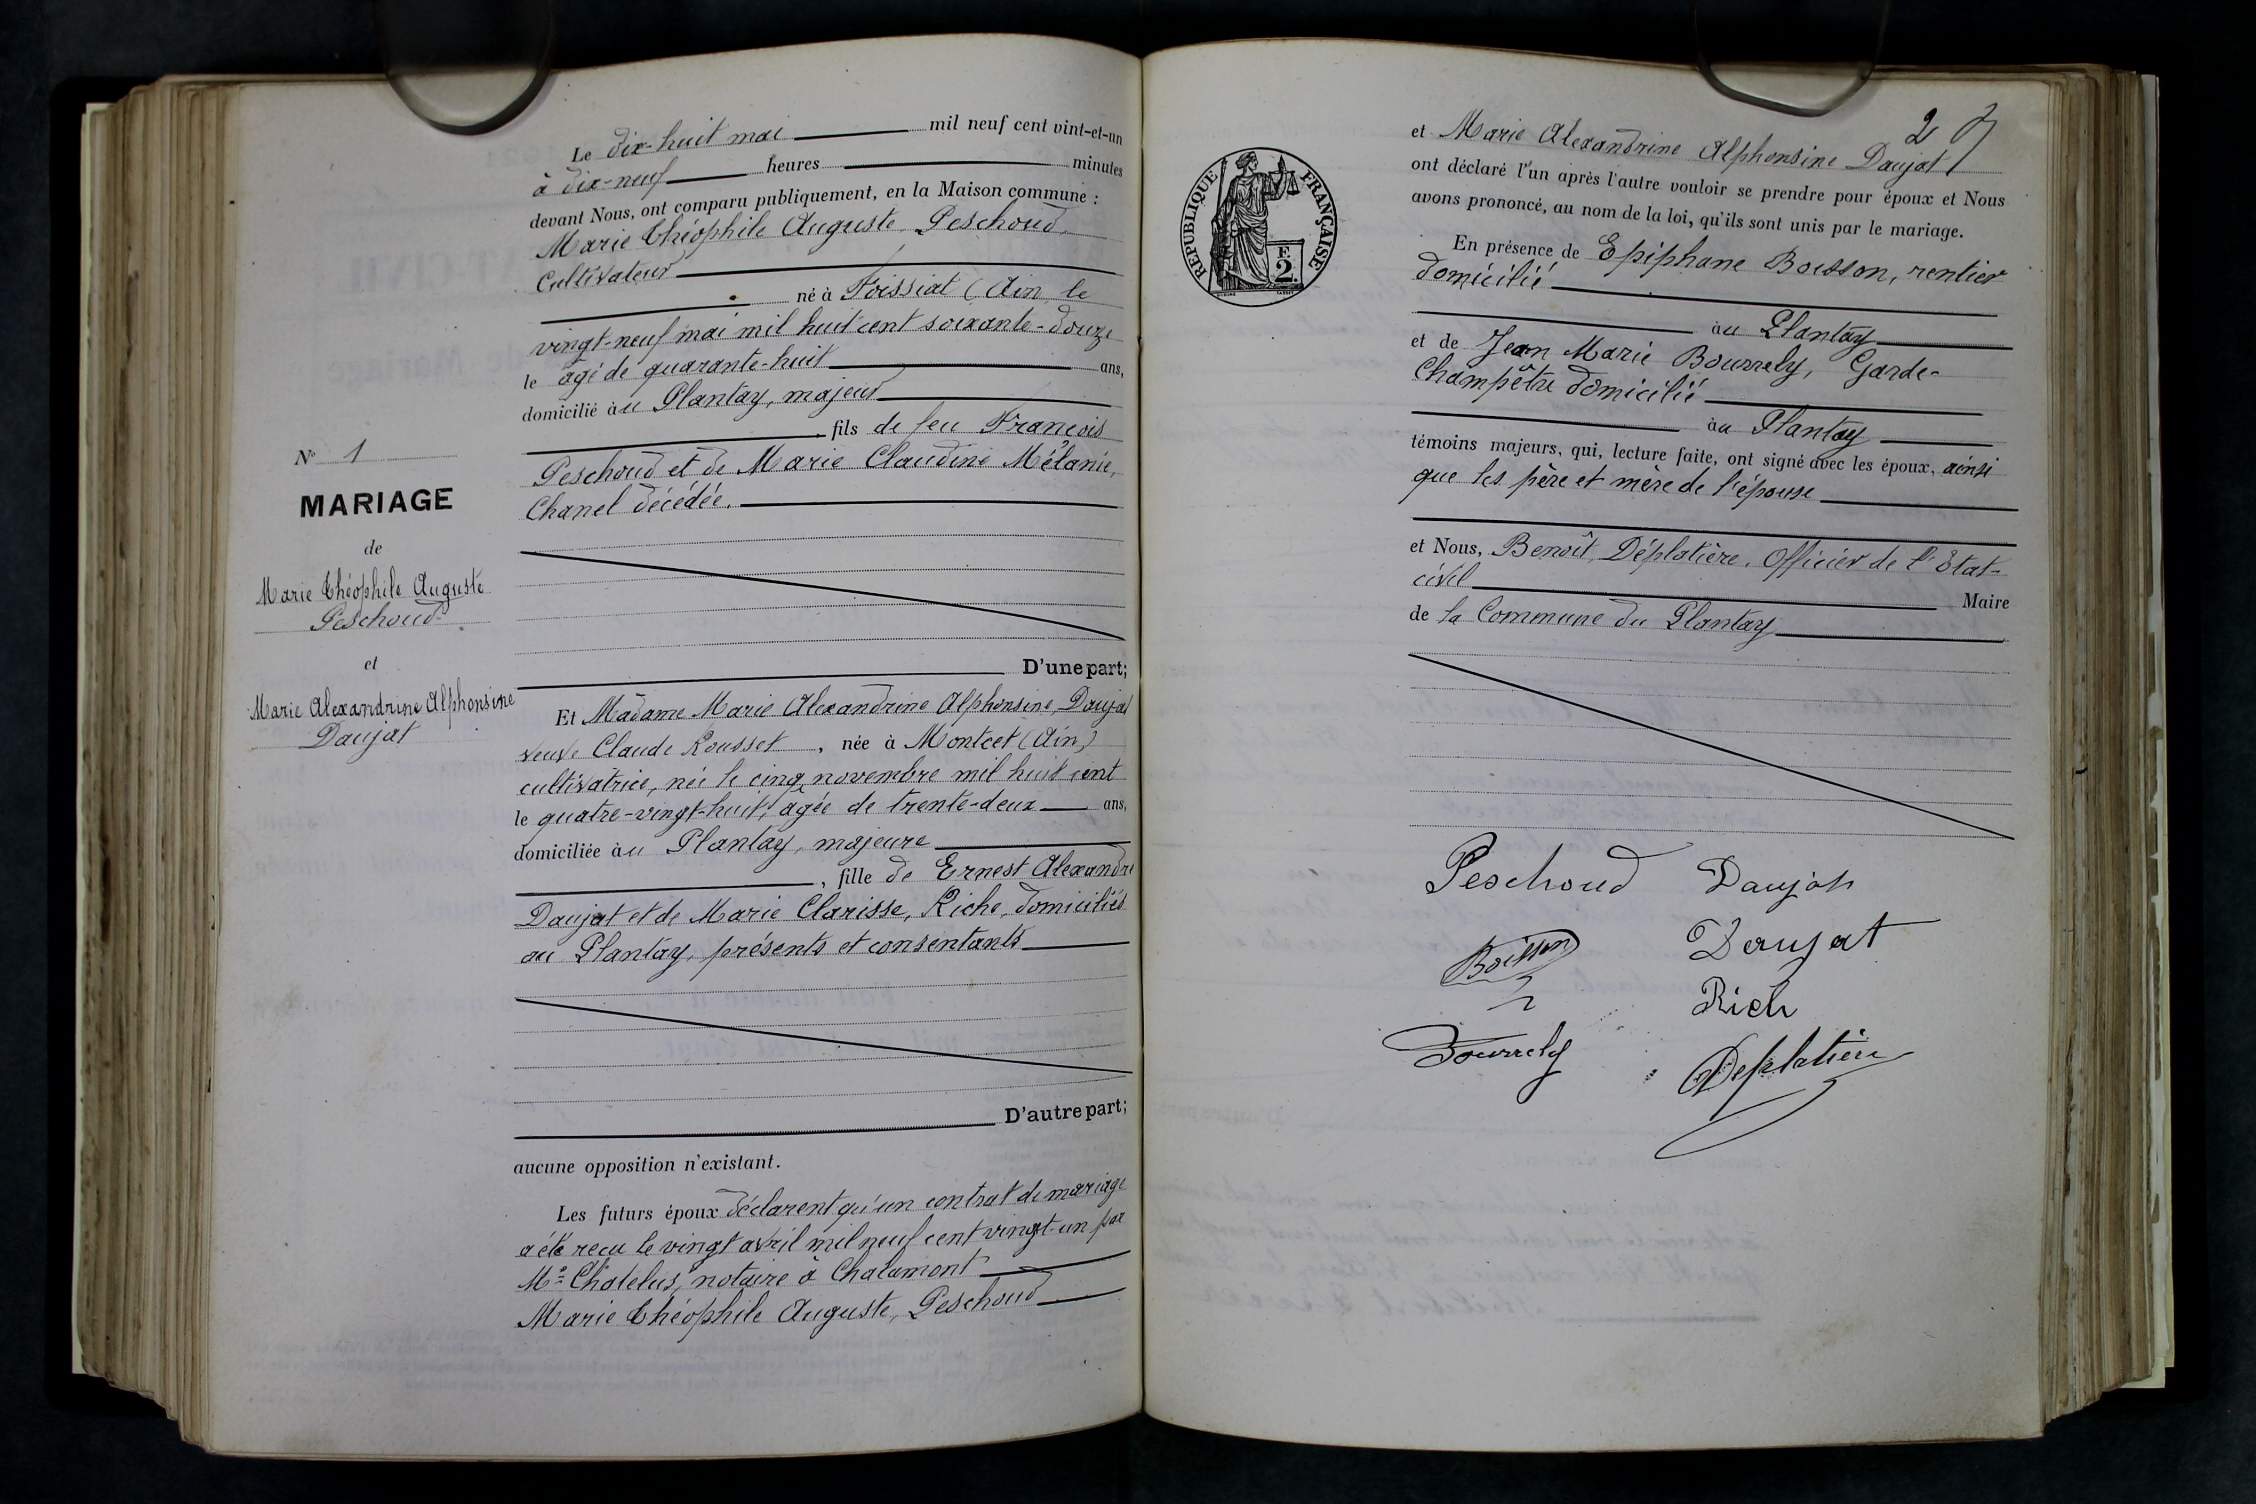 Le dix-huit mai mil neuf cent vint-et-un
à dix-neuf heures minutes
devant Nous, ont comparu publiquement, en la Maison commune :
Marie Théophile Auguste Peschoud,
Cultivateur
né à Foissiat (Ain, le
vingt-neuf mai mil huit cent soixante-douze
le agé de quarante-huit ans,
domicilié àu Plantay, majeur
fils de feu François
Peschoud et de Marie Claudine Mélanie,
Chanel décédée.
D'une part;
Et Madame Marie Alexandrine Alphonsine, Daujat
veuve Claude Rousset, née à Montcet (Ain)
cultivatrice, née le cinq novembre mil huit cent
le quatre-vingt-huit, agée de trente-deux ans,
domiciliée àu Plantay, majeure
, fille de Ernest Alexandre
Daujat et de Marie Clarisse, Riche, domiciliés
au Plantay, présents et consentants
D'autre part;
aucune opposition n'existant.
Les futurs époux déclarent qu'un contrat de mariage
a été reçu le vingt avril mil neuf cent vingt-un par
Me Chatelus, notaire à Chalamont
Marie Théophile Auguste, Peschoud
No 1
MARIAGE
de
Marie Théophile Auguste
Peschoud
et
Marie Alexandrine Alphonsine
Daujat
RÉPUBLIQUE FRANÇAISE
E
2
2
et Marie Alexandrine Alphonsine Daujat
ont déclaré l'un après l'autre vouloir se prendre pour époux et Nous
avons prononcé, au nom de la loi, qu'ils sont unis par le mariage.
En présence de Epiphane Boisson, rentier
domicilié
àu Plantay
et de Jean Marie Bourrely, Garde-
Champêtre domicilié
àu Plantay
témoins majeurs, qui, lecture faite, ont signé avec les époux, ainsi
que les père et mère de l'épouse
et Nous, Benoît, Déplatière, Officier de l'Etat-
civil Maire
de la Commune du Plantay
Peschoud Daujat
Boisson Daujat
Rich
Bourrely Deplatière